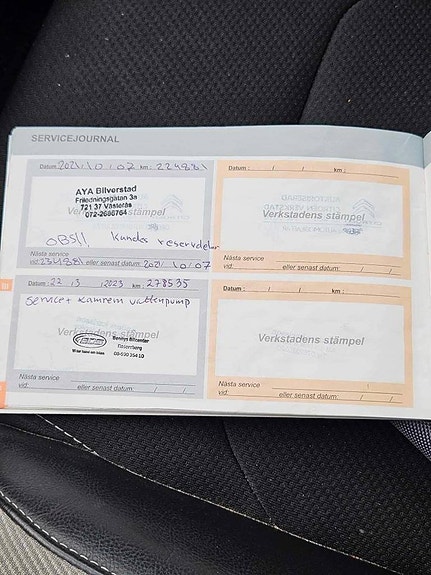 SERVICEJOURNAL
Datum : 2021 / 10 / 07 km : 224881
AYA Bilverstad
Friledningsgatan 3a
721 37 Västerås
072-2686764
Verkstadens stämpel
OBS!! Kundes reservdelar
Nästa service
vid: 234881 eller senast datum: 2021 / 10 / 07
Datum : 22 / 3 / 2023 km : 278535
Service + Kamrem vattenpump
Verkstadens stämpel
Bennys Bilcenter
Nästa service
vid: eller senast datum: / /
Datum : / / km :
Verkstadens stämpel
Nästa service
vid: eller senast datum: / /
Datum : / / km :
Verkstadens stämpel
Nästa service
vid: eller senast datum: / /